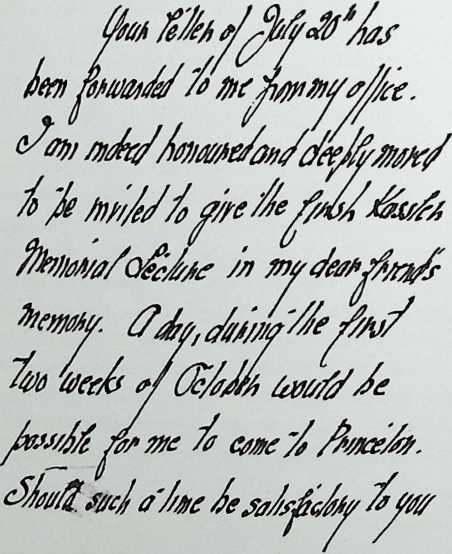 Your letter of July 20th has
been forwarded to me from my office.
I am indeed honoured and deeply moved
to be invited to give the first Kassler
Memorial Lecture in my dear friend's
memory. A day, during the first
two weeks of October would be
possible for me to come to Princeton.
Should such a time be satisfactory to you